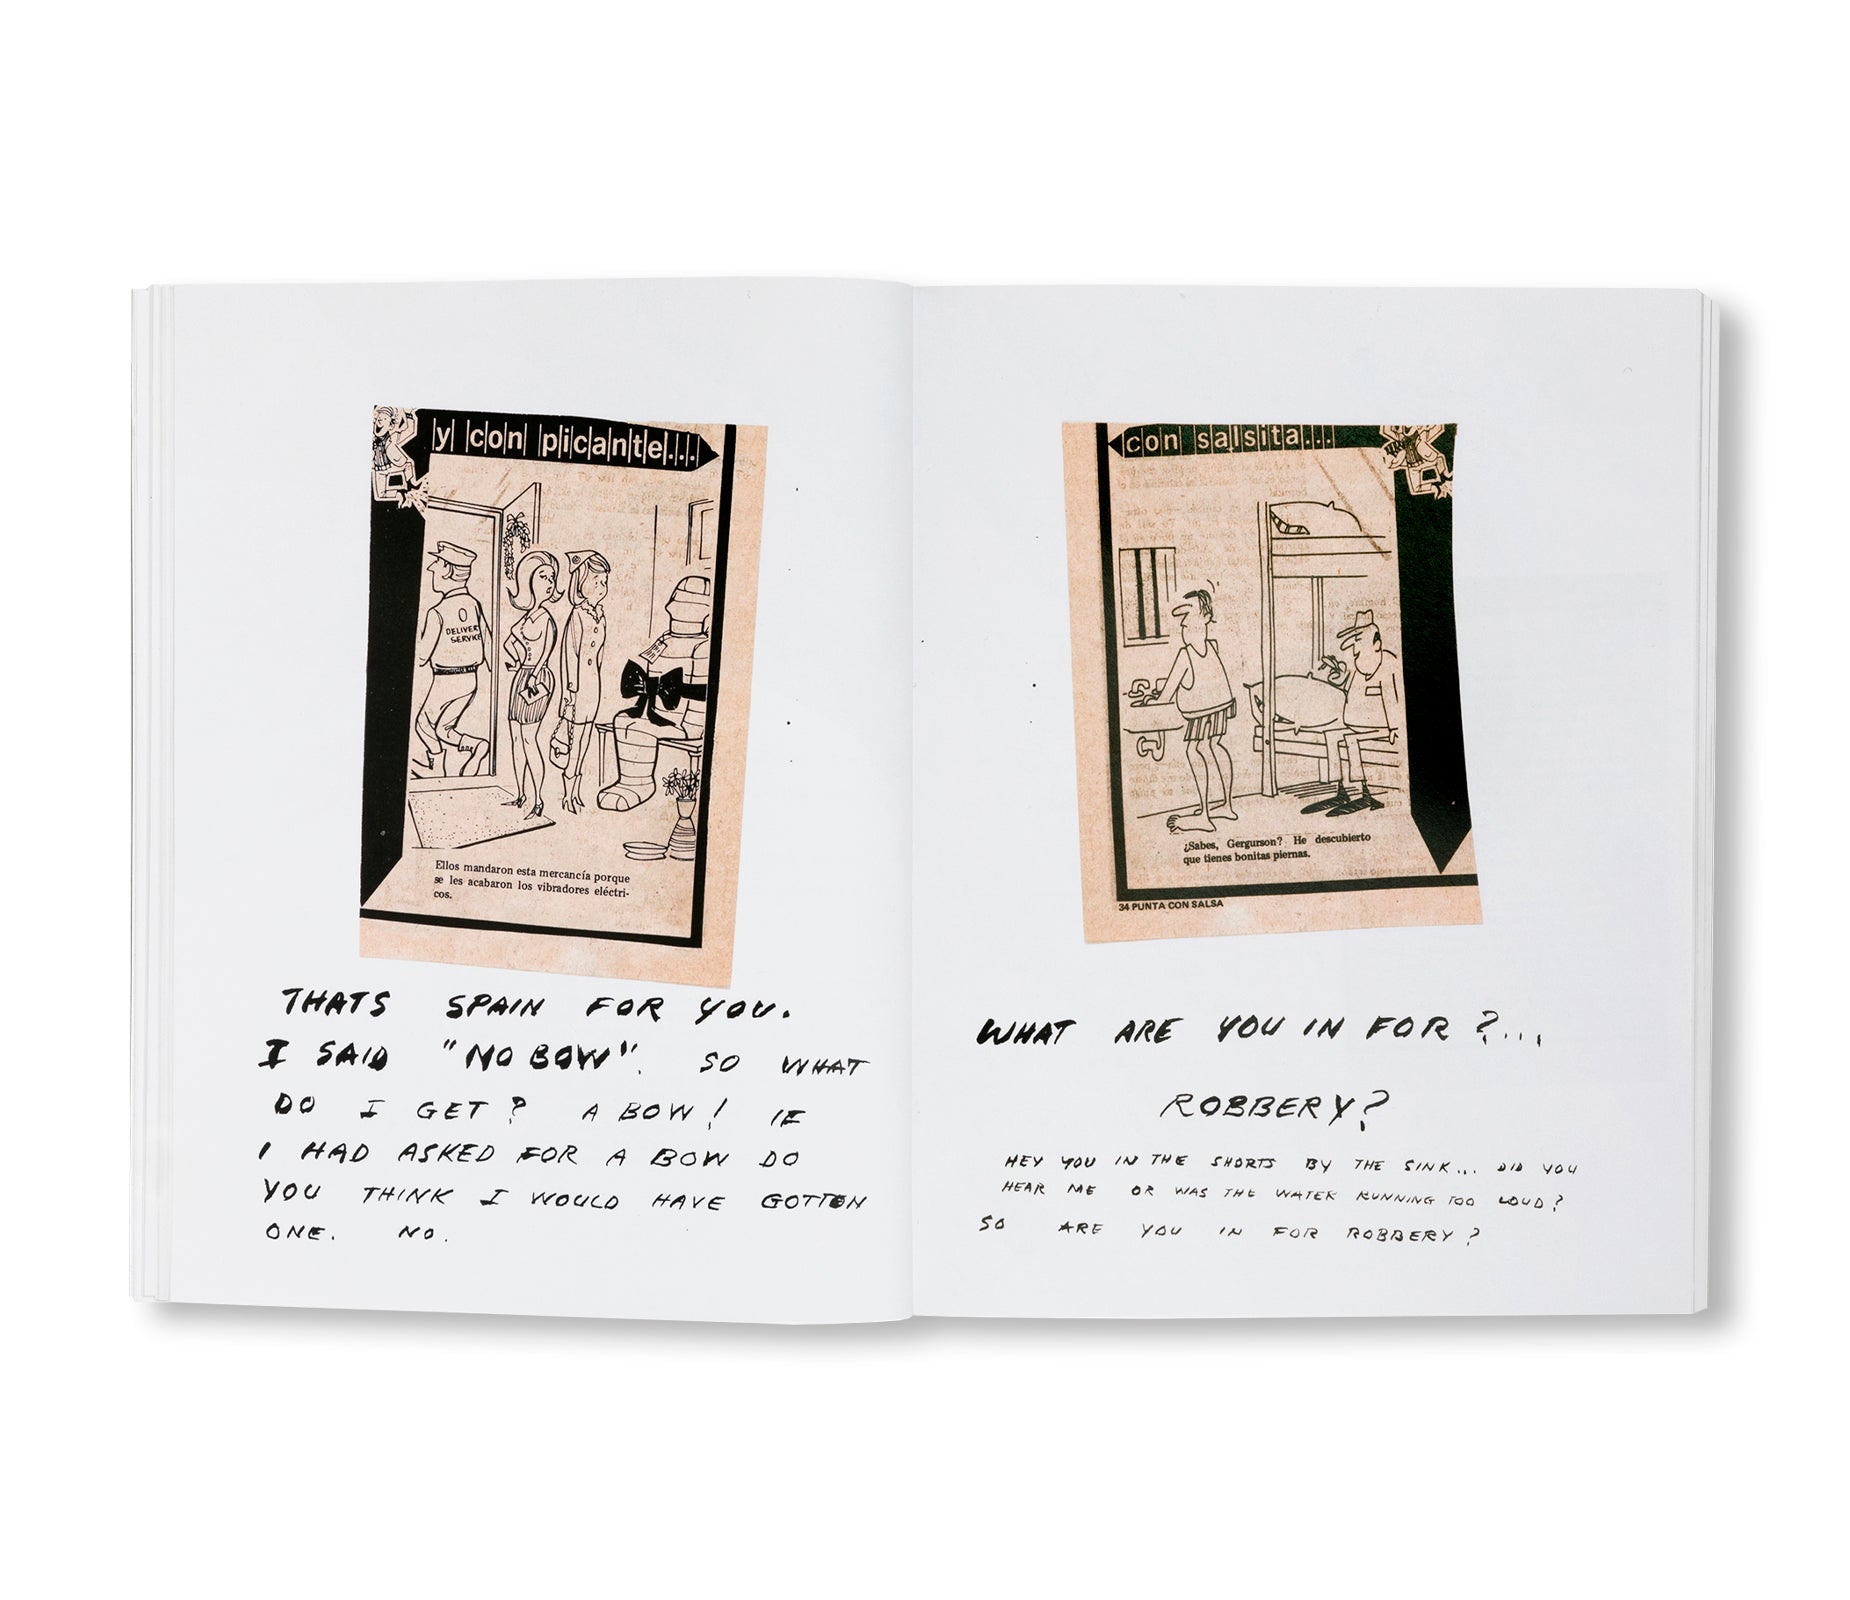 y con picante...
DELIVERY
SERVICE
Ellos mandaron esta mercancía porque
se les acabaron los vibradores eléctri-
cos.
THATS SPAIN FOR YOU.
I SAID "NO BOW". SO WHAT
DO I GET? A BOW! IF
I HAD ASKED FOR A BOW DO
YOU THINK I WOULD HAVE GOTTON
ONE. NO.
con salsita...
¿Sabes, Gergurson? He descubierto
que tienes bonitas piernas.
34 PUNTA CON SALSA
WHAT ARE YOU IN FOR?...
ROBBERY?
HEY YOU IN THE SHORTS BY THE SINK... DID YOU
HEAR ME OR WAS THE WATER RUNNING TOO LOUD?
SO ARE YOU IN FOR ROBBERY?